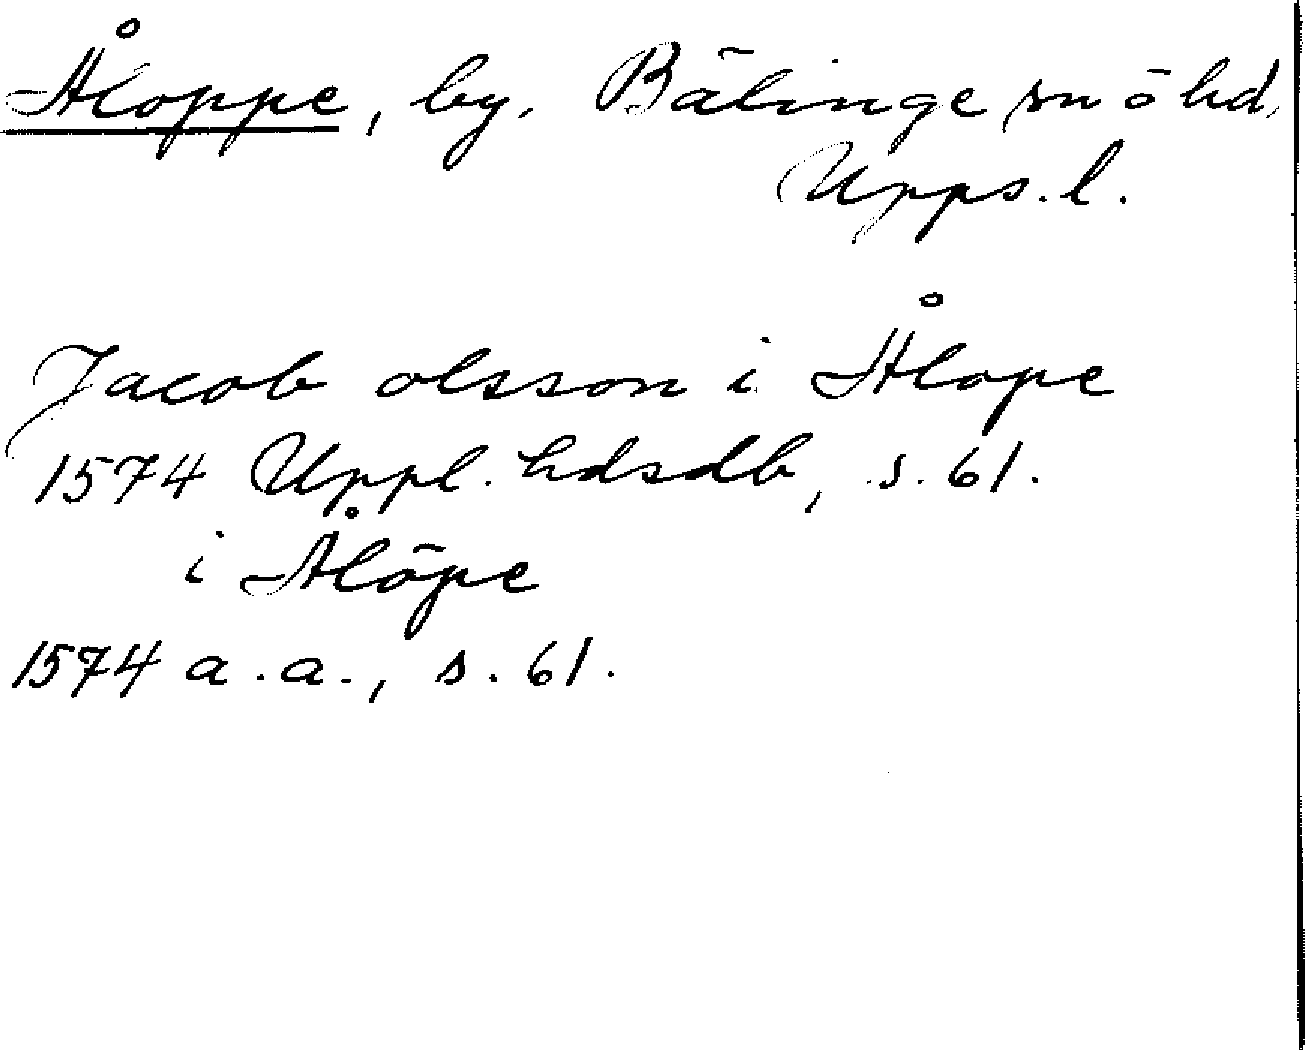 Åloppe, by, Bälinge sn ö hd,
Upps. l.
Jacob olsson i Ålope
1574 Uppl. hdsdb, s. 61.
i Ålöpe
1574 a.a., s. 61.